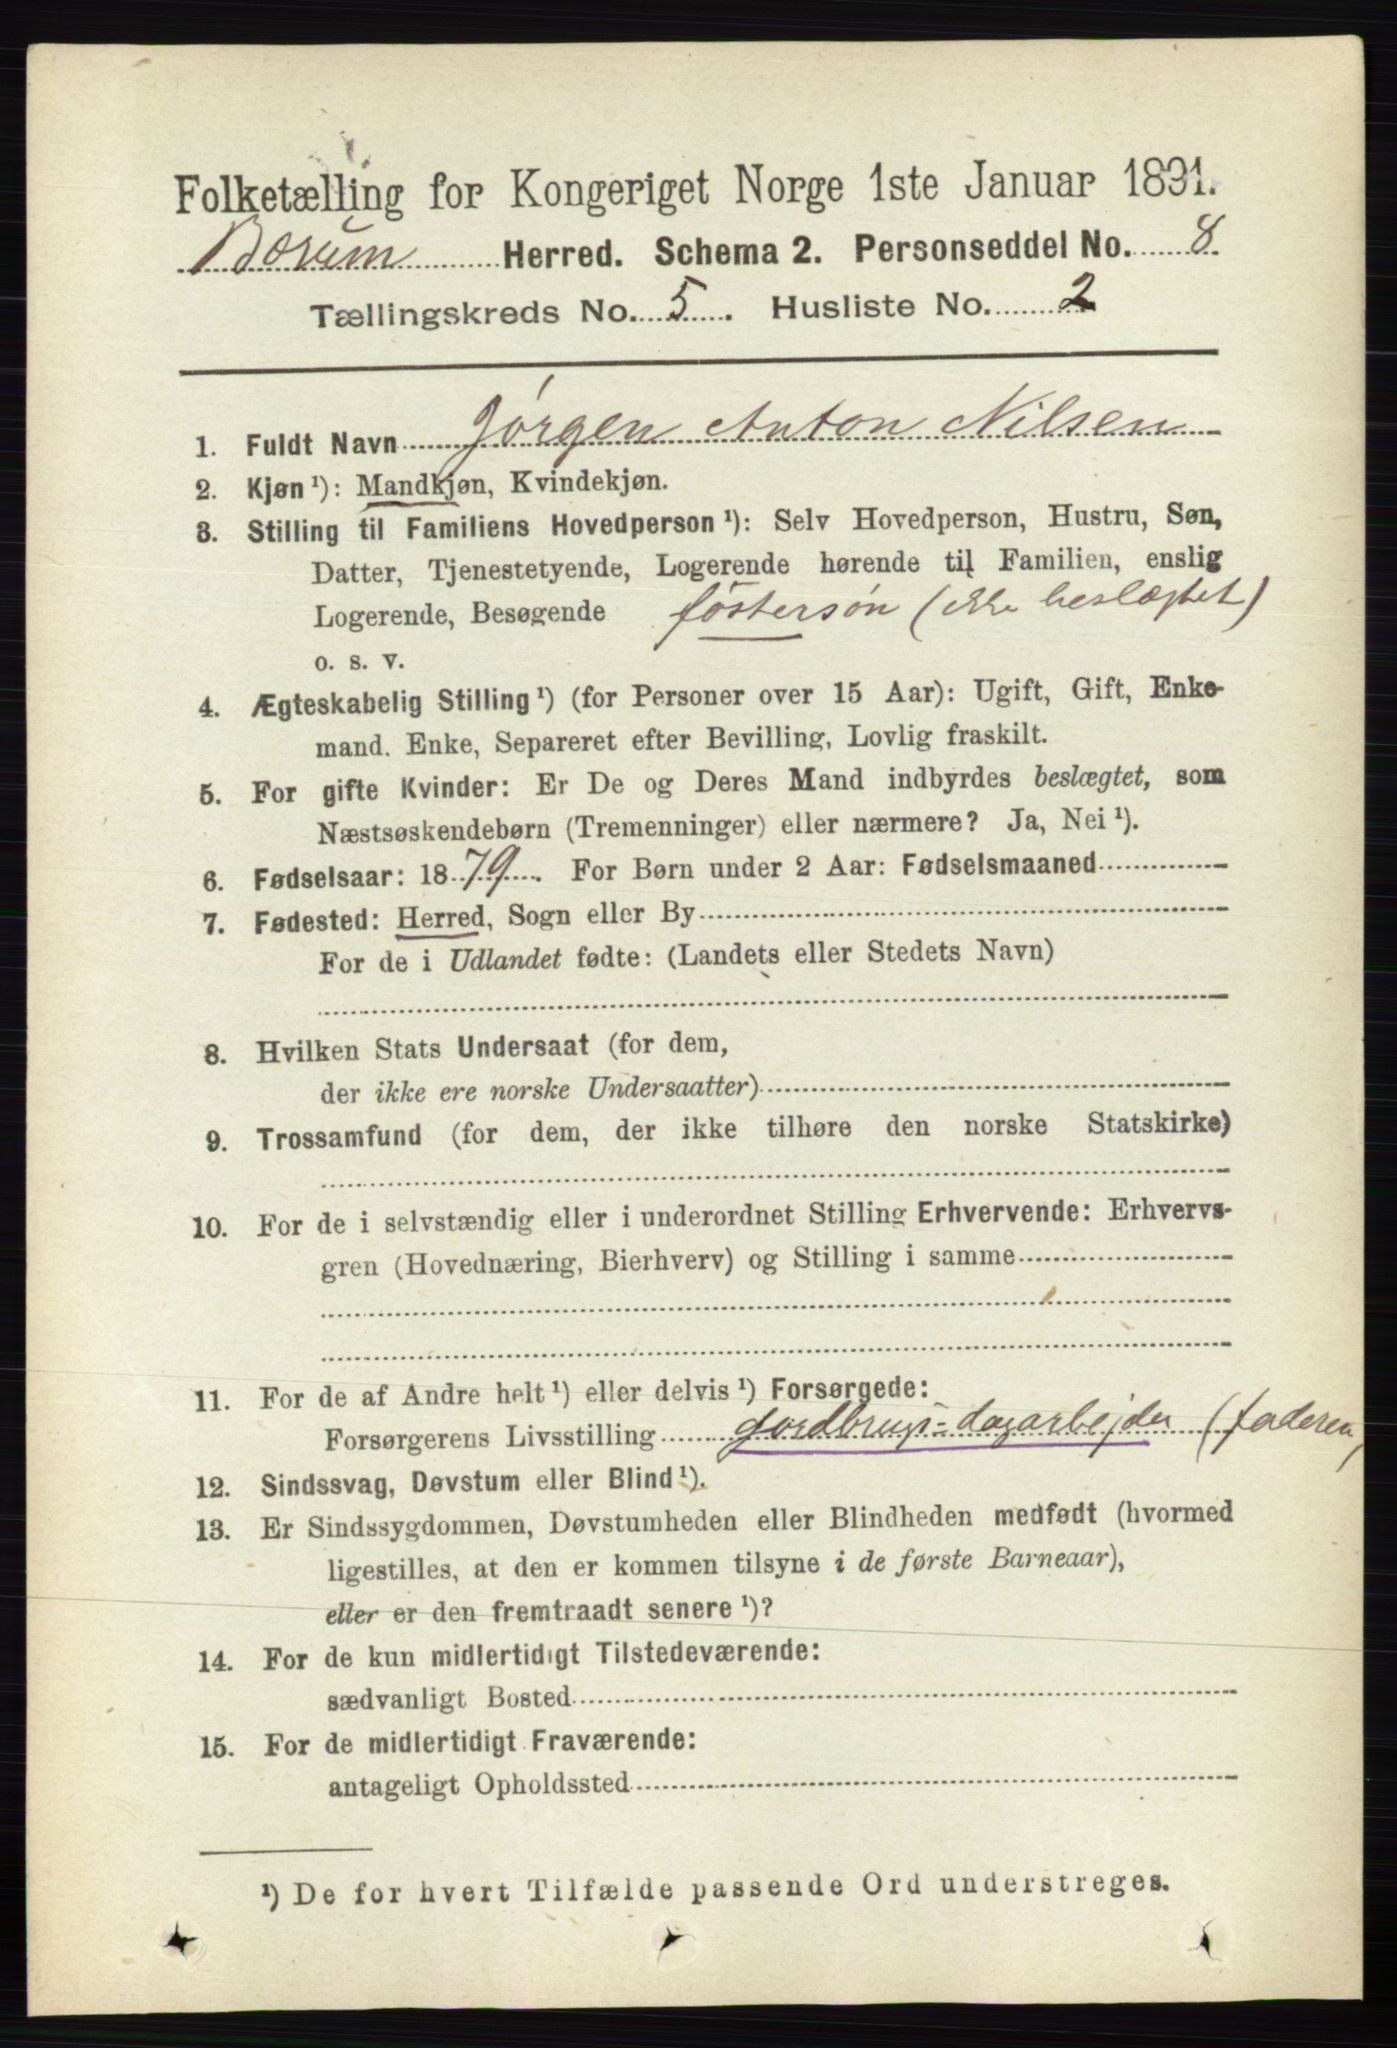 Folketælling for Kongeriget Norge 1ste Januar 1891.
Bærum Herred. Schema 2. Personseddel No. 8
Tællingskreds No. 5. Husliste No. 2
1. Fuldt Navn Jørgen Anton Nilsen
2. Kjøn ¹): Mandkjøn, Kvindekjøn.
3. Stilling til Familiens Hovedperson ¹): Selv Hovedperson, Hustru, Søn,
Datter, Tjenestetyende, Logerende hørende til Familien, enslig
Logerende, Besøgende fostersøn (ikke beslægtet)
o. s. v.
4. Ægteskabelig Stilling ¹) (for Personer over 15 Aar): Ugift, Gift, Enke-
mand. Enke, Separeret efter Bevilling, Lovlig fraskilt.
5. For gifte Kvinder: Er De og Deres Mand indbyrdes beslægtet, som
Næstsøskendebørn (Tremenninger) eller nærmere? Ja, Nei ¹).
6. Fødselsaar: 1879. For Børn under 2 Aar: Fødselsmaaned
7. Fødested: Herred, Sogn eller By
For de i Udlandet fødte: (Landets eller Stedets Navn)
8. Hvilken Stats Undersaat (for dem,
der ikke ere norske Undersaatter)
9. Trossamfund (for dem, der ikke tilhøre den norske Statskirke)
10. For de i selvstændig eller i underordnet Stilling Erhvervende: Erhvervs-
gren (Hovednæring, Bierhverv) og Stilling i samme
11. For de af Andre helt ¹) eller delvis ¹) Forsørgede:
Forsørgerens Livsstilling Jordbrugs-dagarbejder (faderen)
12. Sindssvag, Døvstum eller Blind ¹).
13. Er Sindssygdommen, Døvstumheden eller Blindheden medfødt (hvormed
ligestilles, at den er kommen tilsyne i de første Barneaar),
eller er den fremtraadt senere ¹)?
14. For de kun midlertidigt Tilstedeværende:
sædvanligt Bosted
15. For de midlertidigt Fraværende:
antageligt Opholdssted
¹) De for hvert Tilfælde passende Ord understreges.